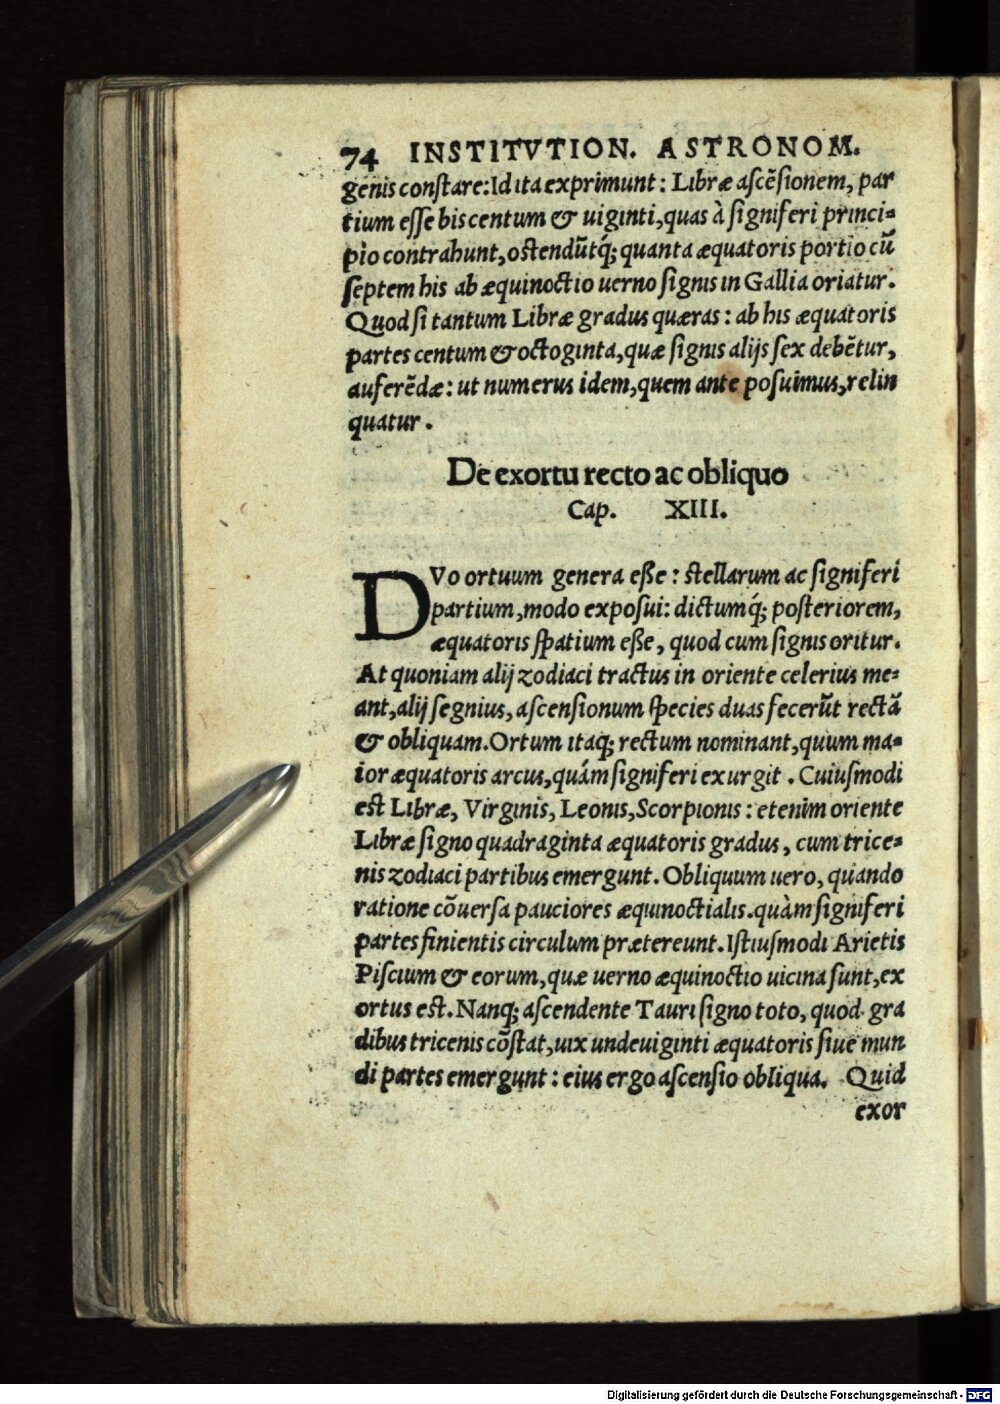 74 INSTITVTION. ASTRONOM.
genis conſtare: Id ita exprimunt: Libræ aſcẽſionem, par
tium eſſe bis centum & uiginti, quas à ſigniferi princi-
pio contrahunt, oſtendũtq́; quanta æquatoris portio cũ
ſeptem his ab æquinoctio uerno ſignis in Gallia oriatur.
Quod ſi tantum Libræ gradus quæras: ab his æquatoris
partes centum & octoginta, quæ ſignis alijs ſex debẽtur,
auferẽdæ: ut numerus idem, quem ante poſuimus, relin
quatur.
De exortu recto ac obliquo
Cap. XIII.
DVo ortuum genera eße: ſtellarum ac ſigniferi
partium, modo expoſui: dictumq́; poſteriorem,
æquatoris ſpatium eße, quod cum ſignis oritur.
At quoniam alij zodiaci tractus in oriente celerius me-
ant, alij ſegnius, aſcenſionum ſpecies duas fecerũt rectã
& obliquam. Ortum itaq; rectum nominant, quum ma-
ior æquatoris arcus, quám ſigniferi exurgit. Cuiuſmodi
eſt Libræ, Virginis, Leonis, Scorpionis: etenim oriente
Libræ ſigno quadraginta æquatoris gradus, cum trice-
nis zodiaci partibus emergunt. Obliquum uero, quando
ratione cõuerſa pauciores æquinoctialis. quàm ſigniferi
partes finientis circulum prætereunt. Iſtiuſmodi Arietis
Piſcium & eorum, quæ uerno æquinoctio uicina ſunt, ex
ortus eſt. Nanq; aſcendente Tauri ſigno toto, quod gra
dibus tricenis cõſtat, uix undeuiginti æquatoris ſiue mun
di partes emergunt: eius ergo aſcenſio obliqua. Quid
exor
Digitalisierung gefördert durch die Deutsche Forschungsgemeinschaft - DFG